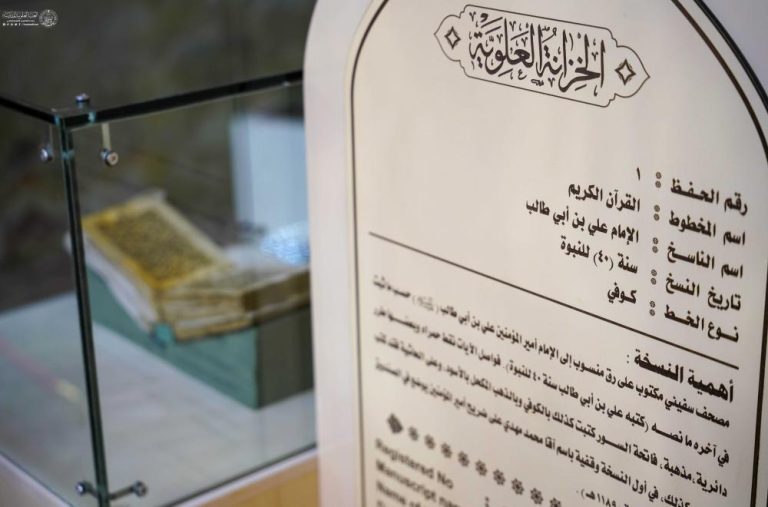 الخزانة العلوية
رقم الحفظ : ١
اسم المخطوط : القرآن الكريم
اسم الناسخ : الإمام علي بن أبي طالب
تاريخ النسخ : سنة (٤٠) للنبوة
نوع الخط : كوفي
أهمية النسخة :
مصحف سفيني مكتوب على رق منسوب إلى الإمام أمير المؤمنين علي بن أبي طالب حسب ما ثبت
في آخره ما نصه (كتبه علي بن أبي طالب سنة ٤٠ للنبوة). فواصل الآيات نقط حمراء وبعضها
دائرية، مذهبة، فاتحة السور كتبت كذلك بالكوفي وبالذهب المكحل بالأسود. وعلى الحاشية
كذلك، في أول النسخة وقفية باسم آقا محمد مهدي على ضريح أمير المؤمنين يوضع في الصندوق
١١٨٩هـ).
Registered No
Manuscript
Name of